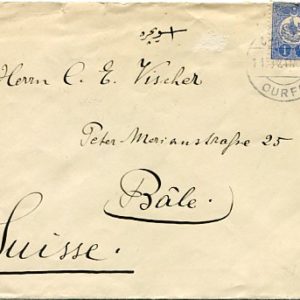 اسویچره
Herrn C. E. Vischer
Peter Merianstraße 25
Bâle.
Suisse.
OURF